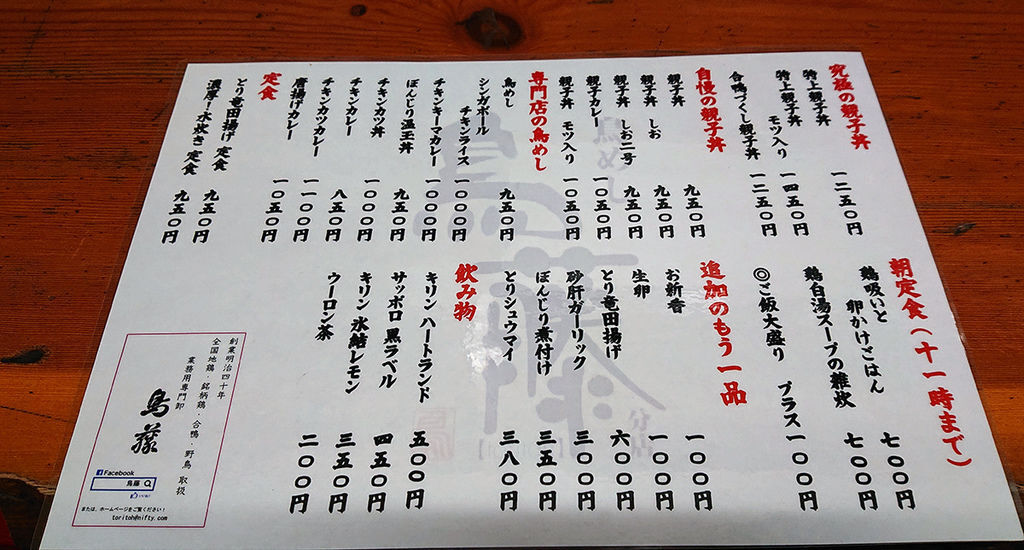 究極の親子丼
特上親子丼 一二五〇円
特上親子丼 モツ入り 一四五〇円
合鴨づくし親子丼 一二五〇円
自慢の親子丼
親子丼 九五〇円
親子丼 しお 九五〇円
親子丼 しお二号 九五〇円
親子カレー 一〇五〇円
親子丼 モツ入り 一〇五〇円
専門店の鳥めし
鳥めし 九五〇円
シンガポール
チキンライス 一〇〇〇円
チキンキーマカレー 一〇〇〇円
ぼんじり温玉丼 九五〇円
チキンカツ丼 一〇〇〇円
チキンカレー 八五〇円
チキンカツカレー 一一〇〇円
唐揚げカレー 一〇五〇円
定食
とり竜田揚げ 定食 九五〇円
濃厚!水炊き 定食 九五〇円
朝定食(十一時まで)
鶏吸いと
卵かけごはん 七〇〇円
鶏白湯スープの雑炊 七〇〇円
◎ご飯大盛り プラス一〇〇円
追加のもう一品
お新香 一〇〇円
生卵 一〇〇円
とり竜田揚げ 六〇〇円
砂肝ガーリック 三〇〇円
ぼんじり煮付け 三五〇円
とりシュウマイ 三八〇円
飲み物
キリン ハートランド 五〇〇円
サッポロ 黒ラベル 四五〇円
キリン 氷結レモン 三五〇円
ウーロン茶 二〇〇円
鳥めし
鳥藤
分店
創業明治四十年
全国地鶏・銘柄鶏・合鴨・野鳥 取扱
業務用専門卸
鳥藤
Facebook
鳥藤
いいね!
または、ホームページをご覧ください!
toritoh@nifty.com